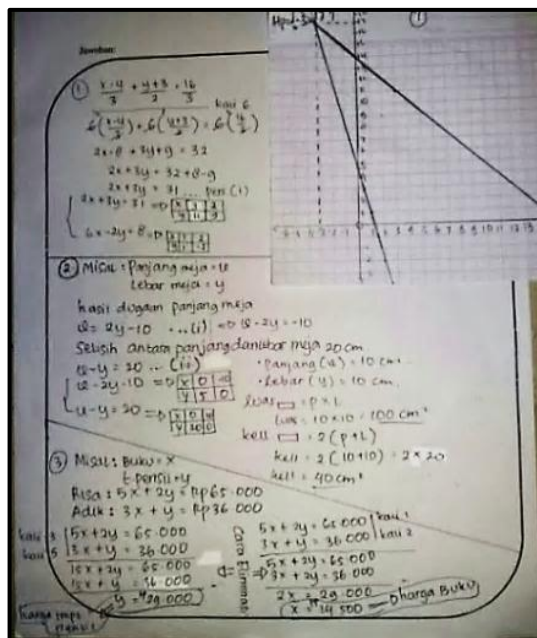 Jawaban:
①
① x-4/3 + y+3/2 = 16/3
kali 6
2x-8 + 3y+9 = 32
2x+3y = 32+8-9
2x+3y = 31 ... pers (1)
2x+3y = 31 =>
6x-2y = 8 =>
② Misal : Panjang meja = x
Lebar meja = y
hasil dugaan panjang meja
x = 2y-10 ...(i) => x-2y = -10
Selisih antara panjang dan lebar meja 20 cm
x-y = 20 ... (ii)
x-2y-10 =>
x-y = 20 =>
• Panjang (x) = 10 cm.
• lebar (y) = 10 cm.
luas = p x l
luas = 10 x 10 = 100 cm²
kell = 2(p+l)
kell = 2(10+10) = 2 x 20
kell = 40 cm²
③ Misal : Buku = x
t.pensil = y
Risa : 5x + 2y = Rp 65.000
Adik : 3x + y = Rp 36.000
kali 3 5x + 2y = 65.000
kali 5 3x + y = 36.000
15x + 2y = 65.000
15x + y = 36.000
y = 29.000
harga
Cara Eliminasi
5x + 2y = 65.000 kali 1
3x + y = 36.000 kali 2
5x + 2y = 65.000
3x + 2y = 36.000
2x = 29.000
x = 14.500 harga Buku